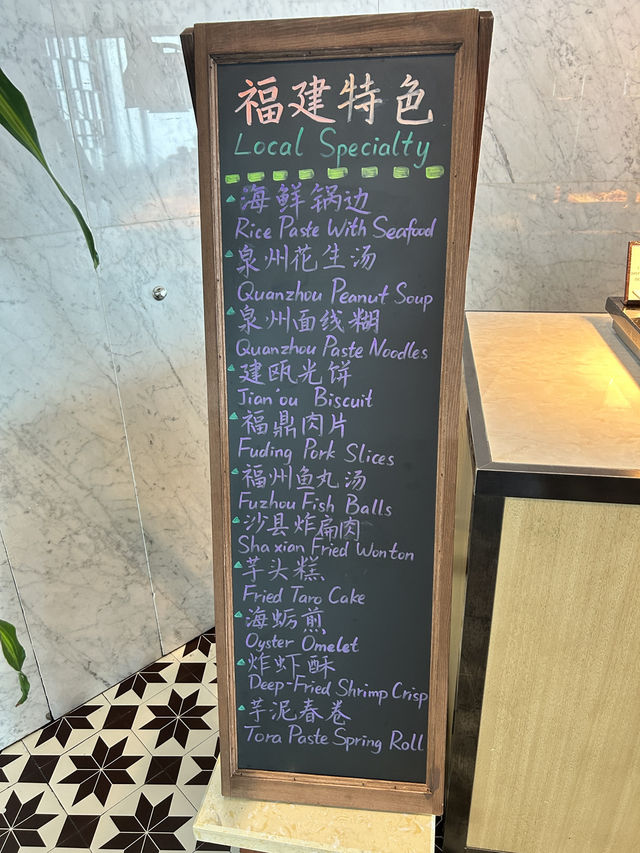 福建特色
Local Specialty
海鲜锅边
Rice Paste With Seafood
泉州花生汤
Quanzhou Peanut Soup
泉州面线糊
Quanzhou Paste Noodles
建瓯光饼
Jian'ou Biscuit
福鼎肉片
Fuding Pork Slices
福州鱼丸汤
Fuzhou Fish Balls
沙县炸扁肉
Shaxian Fried Wonton
芋头糕
Fried Taro Cake
海蛎煎
Oyster Omelet
炸虾酥
Deep-Fried Shrimp Crisp
芋泥春卷
Tora Paste Spring Roll